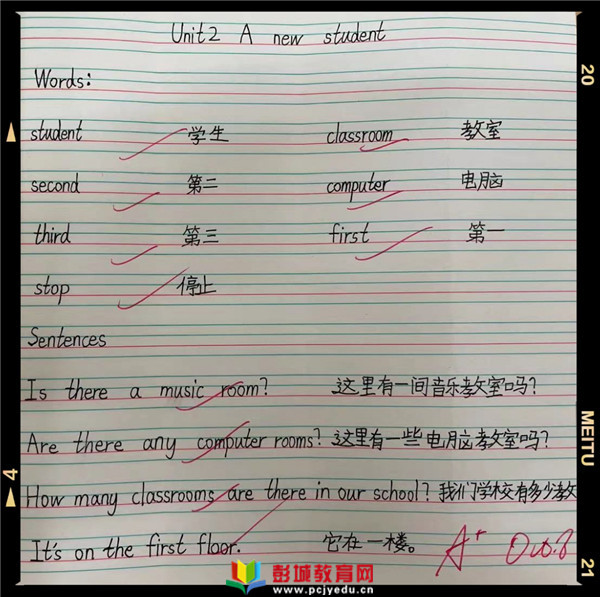 Unit2 A new student
Words:
student 学生 classroom 教室
second 第二 computer 电脑
third 第三 first 第一
stop 停止
Sentences
Is there a music room? 这里有一间音乐教室吗?
Are there any computer rooms? 这里有一些电脑教室吗?
How many classrooms are there in our school? 我们学校有多少教
It's on the first floor. 它在一楼。
A+
彭城教育网
www.pcjyedu.cn
20
MEITU
21
4